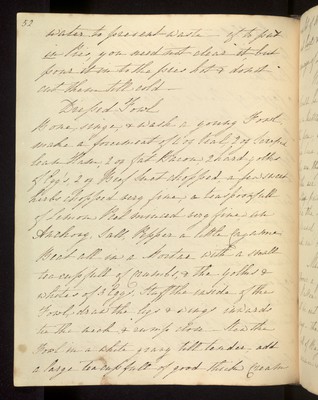 52
water to prevent waste - if to put
in Pies, you need not clear it but
pour it in to the pies hot & do not
cut them till cold -
Dressed Fowl
Bone, singe, & wash a young Fowl,
make a forcemeat of 4 oz Veal, 2 oz scraped
lean Ham, 2 oz fat Bacon, 2 hard yolks
of Eggs, 2 oz Beef Suet chopped, a few sweet
herbs chopped very fine, a teaspoonfull
of Lemon Peel minced very fine, an
Anchovy, Salt, Pepper a little Cayenne
Beat all in a Mortar with a small
teacupfull of crumbs, & the yolks &
whites of 3 Eggs. Stuff the inside of the
Fowl, draw the legs & wings inwards
tie the neck & rump close - Stew the
Fowl in a white gravy till tender, add
a large teacupfull of good thick Cream